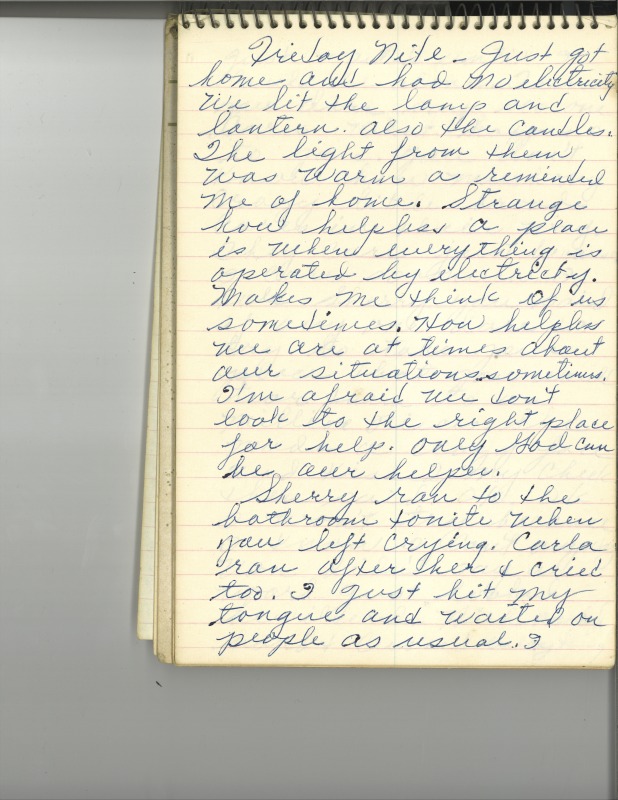 Friday Nite - Just got
home and had no electricity
We lit the lamp and
lantern. also the candles.
The light from them
was warm a reminded
me of home. Strange
how helpless a place
is when everything is
operated by electricty.
Makes me think of us
sometimes. How helpless
we are at times about
our situations sometimes.
I'm afraid we don't
look to the right place
for help. only God can
be our helper.
Sherry ran to the
bathroom tonite when
you left crying. Carla
ran after her & cried
too. I just bit my
tongue and waited on
people as usual. I